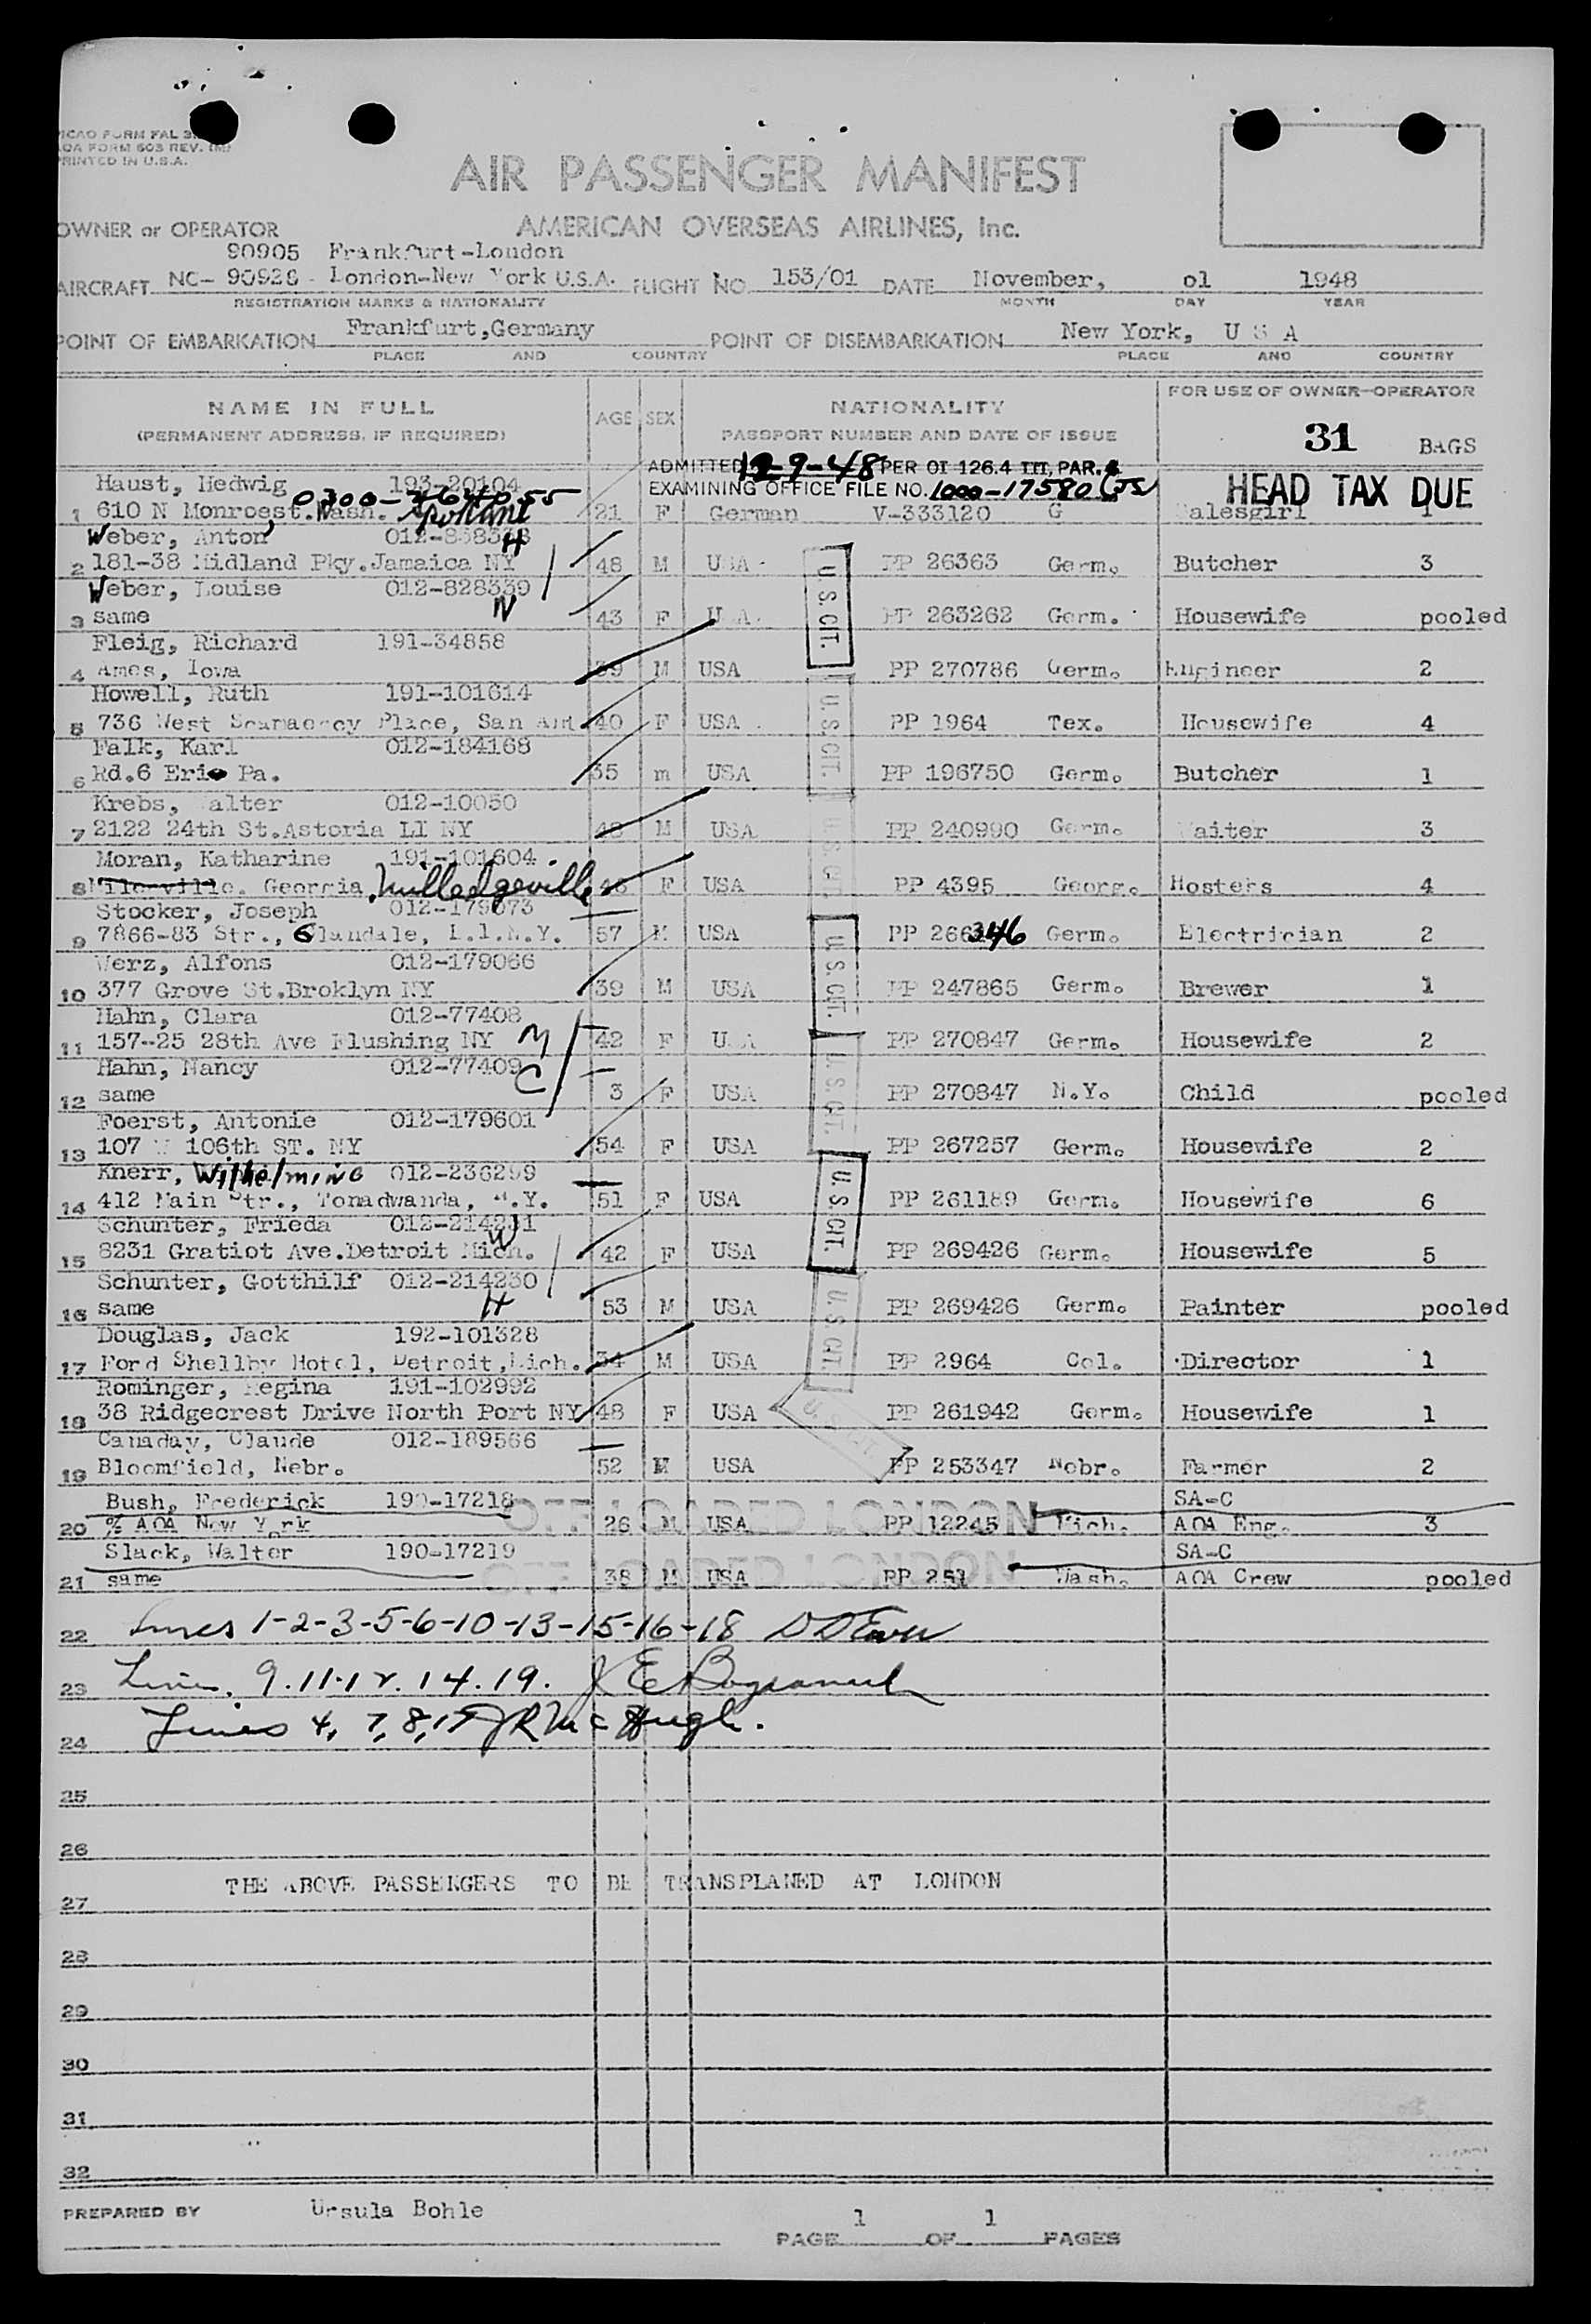 ICAO FORM FAL
AOA FORM 603 REV.
PRINTED IN U.S.A.
AIR PASSENGER MANIFEST
OWNER or OPERATOR AMERICAN OVERSEAS AIRLINES, Inc.
90905 Frankfurt-London
AIRCRAFT NC- 90926 - London-New York U.S.A. FLIGHT NO. 153/01 DATE November, 01 1948
REGISTRATION MARKS & NATIONALITY MONTH DAY YEAR
POINT OF EMBARKATION Frankfurt, Germany POINT OF DISEMBARKATION New York, U S A
PLACE AND COUNTRY PLACE AND COUNTRY
NAME IN FULL AGE SEX NATIONALITY FOR USE OF OWNER-OPERATOR
(PERMANENT ADDRESS, IF REQUIRED) PASSPORT NUMBER AND DATE OF ISSUE 31 BAGS
ADMITTED 12-9-48 PER OI 126.4 III, PAR. 4
EXAMINING OFFICE FILE NO. 1000-17580
HEAD TAX DUE
Haust, Hedwig 193-20104
0300-
1 610 N Monroest. Wash. Spokane 21 F German V-333120 G Salesgirl 1
Weber, Anton
H
2 181-38 Midland Pky.Jamaica NY 48 M USA PP 26363 Germ. Butcher 3
Weber, Louise 012-828339
W
3 same 43 F U A PP 263262 Germ. Housewife pooled
Fleig, Richard 191-34858
4 Ames, Iowa 39 M USA PP 270786 Germ. Engineer 2
Howell, Ruth 191-101614
5 736 West Place, San Ant 40 F USA PP 1964 Tex. Housewife 4
Falk, Karl 012-184168
6 Rd.6 Erie Pa. 35 m USA PP 196750 Germ. Butcher 1
Krebs, Walter 012-10050
7 2122 24th St.Astoria LI NY 48 M USA PP 240990 Germ. Waiter 3
Moran, Katharine 191-101604
8 Georgia, Milledgeville F USA PP 4395 Georg. Hostess 4
Stocker, Joseph 012-179673
9 7866-83 Str., Glandale, L.I.N.Y. 57 M USA PP 266346 Germ. Electrician 2
Werz, Alfons 012-179066
10 377 Grove St.Broklyn NY 39 M USA PP 247865 Germ. Brewer 1
Hahn, Clara 012-77408
11 157-25 28th Ave Flushing NY M 42 F USA PP 270847 Germ. Housewife 2
Hahn, Nancy 012-77409
C
12 same 3 F USA PP 270847 N.Y. Child pooled
Foerst, Antonie 012-179601
13 107 W 106th ST. NY 54 F USA PP 267257 Germ. Housewife 2
Knerr, Wilhelmine 012-236299
14 412 Main Str., Tonadwanda, N.Y. 51 F USA PP 261189 Germ. Housewife 6
Schunter, Frieda 012-214231
W
15 8231 Gratiot Ave.Detroit Mich. 42 F USA PP 269426 Germ. Housewife 5
Schunter, Gotthilf 012-214230
H
16 same 53 M USA PP 269426 Germ. Painter pooled
Douglas, Jack 192-101328
17 Ford Shellby Hotel, Detroit,Mich. 34 M USA PP 2964 Col. Director 1
Rominger, Regina 191-102992
18 38 Ridgecrest Drive North Port NY 48 F USA PP 261942 Germ. Housewife 1
Canaday, Claude 012-189566
19 Bloomfield, Nebr. 52 M USA PP 253347 Nebr. Farmer 2
U.S. CIT.
U.S. CIT.
U.S. CIT.
U.S. CIT.
U.S. CIT.
U.S. CIT.
U.S. CIT.
Bush, Frederick 190-17218 SA-C
OFF LOADED LONDON
20 % AOA New York 26 M USA PP 12245 Mich. AOA Eng. 3
Slack, Walter 190-17219 SA-C
OFF LOADED LONDON
21 same 38 M USA PP 251 Wash. AOA Crew pooled
22 Lines 1-2-3-5-6-10-13-15-16-18
23 Lines 9.11.12.14.19.
24 Lines 4, 7, 8, 17 J R McHugh.
25
26
27 THE ABOVE PASSENGERS TO BE TRANSPLANED AT LONDON
28
29
30
31
32
PREPARED BY Ursula Bohle
PAGE 1 OF 1 PAGES